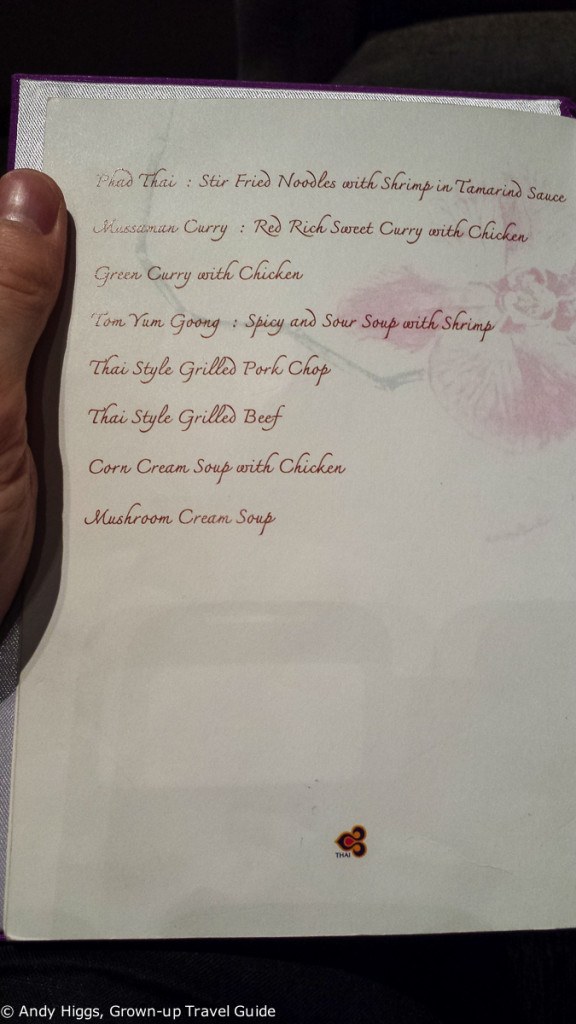 Phad Thai : Stir Fried Noodles with Shrimp in Tamarind Sauce
Mussaman Curry : Red Rich Sweet Curry with Chicken
Green Curry with Chicken
Tom Yum Goong : Spicy and Sour Soup with Shrimp
Thai Style Grilled Pork Chop
Thai Style Grilled Beef
Corn Cream Soup with Chicken
Mushroom Cream Soup
THAI
© Andy Higgs, Grown-up Travel Guide